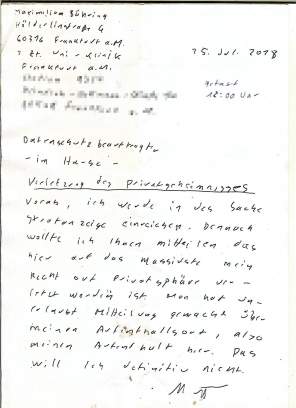 Maximilian Bähring
Hölderlinstraße 4
60316 Frankfurt a.M.
z.Zt. Uni-Klinik
Frankfurt a.M.
25. Jul. 2018
gefaxt
18:00 Uhr
Datenschutzbeauftragter
- im Hause -
Verletzung des Privatgeheimnisses
Vorab, ich werde in der Sache
Strafanzeige einreichen. Dennoch
wollte ich Ihnen mitteilen das
hier auf das Massivste mein
Recht auf Privatsphäre ver-
letzt worden ist. Man hat un-
erlaubt Mitteilung gemacht über
meinen Aufenthaltsort, also
meinen Aufenthalt hier. Das
will ich definitiv nicht.